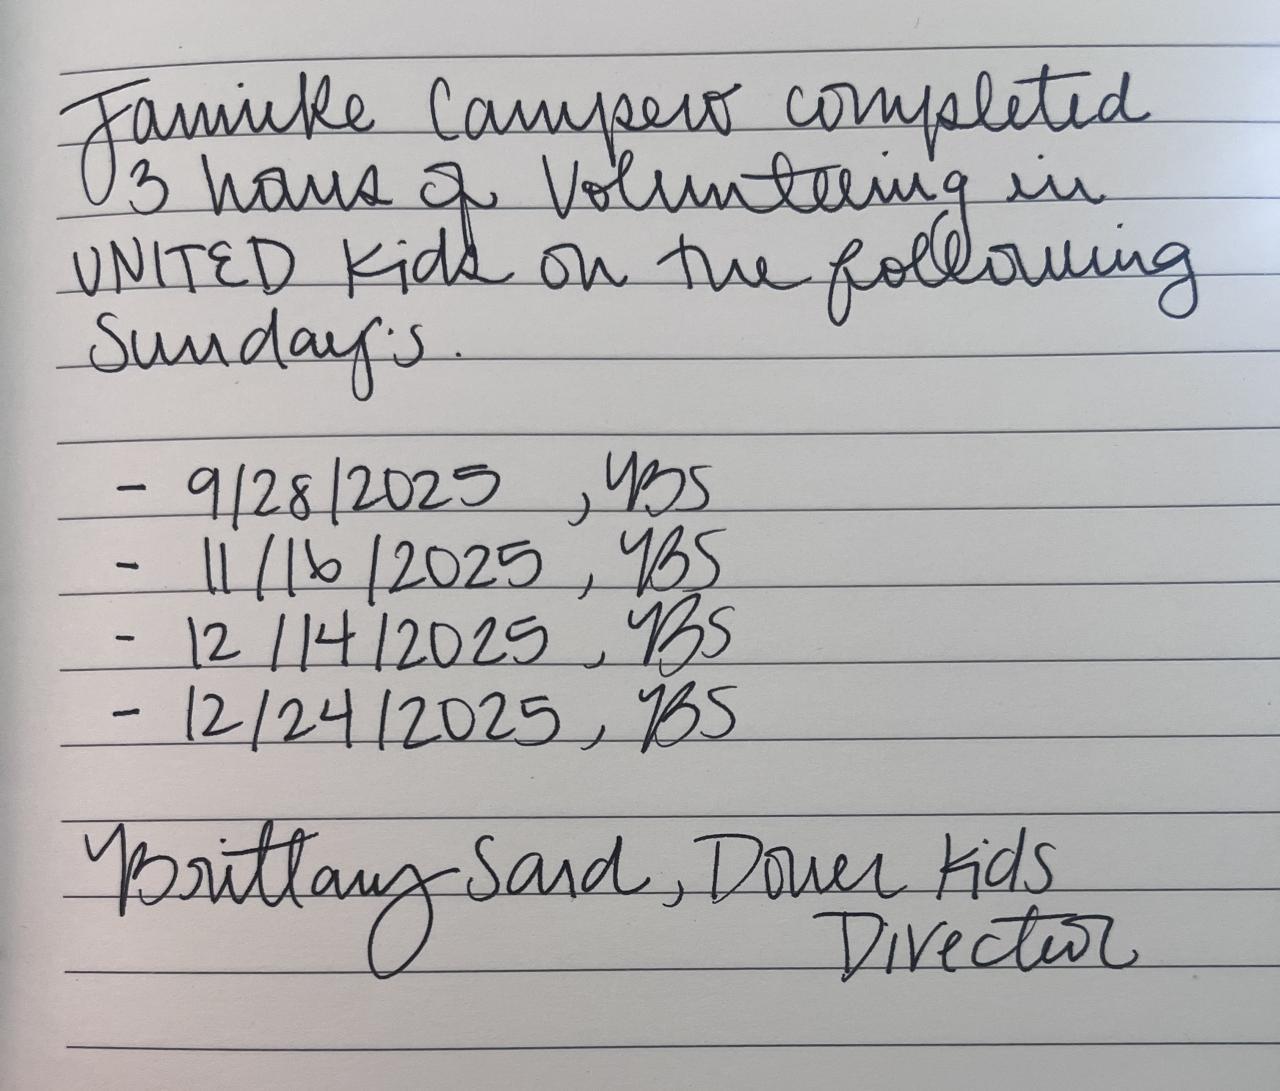 Jamieke Campero completed
3 hours of Volunteering in
UNITED Kids on the following
Sunday's.
- 9/28/2025 , BS
- 11/16/2025 , BS
- 12/14/2025 , BS
- 12/24/2025 , BS
Brittany Sard, Dover Kids
Director